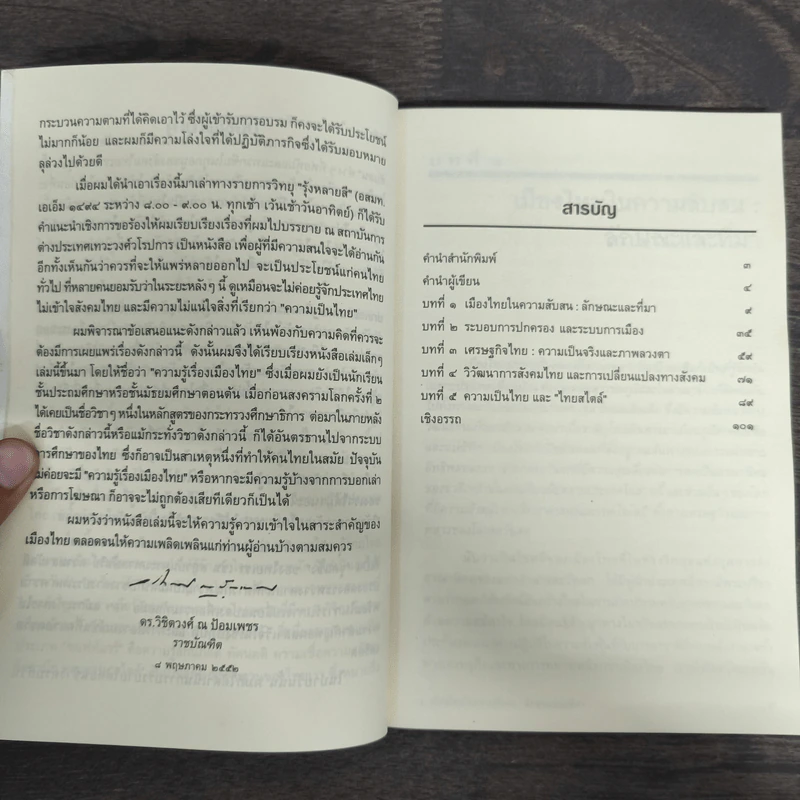 กระบวนความตามที่ได้คิดเอาไว้ ซึ่งผู้เข้ารับการอบรม ก็คงจะได้รับประโยชน์
ไม่มากก็น้อย และผมก็มีความโล่งใจที่ได้ปฏิบัติภารกิจซึ่งได้รับมอบหมาย
ลุล่วงไปด้วยดี
เมื่อผมได้นำเอาเรื่องนี้มาเล่าทางรายการวิทยุ "รุ้งหลายสี" (อสมท.
เอเอ็ม ๑๔๙๔ ระหว่าง ๘.๐๐ - ๙.๐๐ น. ทุกเช้า เว้นเช้าวันอาทิตย์) ก็ได้รับ
คำแนะนำเชิงการขอร้องให้ผมเรียบเรียงเรื่องที่ผมไปบรรยาย ณ สถาบันการ
ต่างประเทศเทวะวงศ์วโรปการ เป็นหนังสือ เพื่อผู้ที่มีความสนใจจะได้อ่านกัน
อีกทั้งเห็นกันว่าควรที่จะให้แพร่หลายออกไป จะเป็นประโยชน์แก่คนไทย
ทั่วไป ที่หลายคนยอมรับว่าในระยะหลังๆ นี้ ดูเหมือนจะไม่ค่อยรู้จักประเทศไทย
ไม่เข้าใจสังคมไทย และมีความไม่แน่ใจสิ่งที่เรียกว่า "ความเป็นไทย"
ผมพิจารณาข้อเสนอแนะดังกล่าวแล้ว เห็นพ้องกับความคิดที่ควรจะ
ต้องมีการเผยแพร่เรื่องดังกล่าวนี้ ดังนั้นผมจึงได้เรียบเรียงหนังสือเล่มเล็กๆ
เล่มนี้ขึ้นมา โดยให้ชื่อว่า "ความรู้เรื่องเมืองไทย" ซึ่งเมื่อผมยังเป็นนักเรียน
ชั้นประถมศึกษาหรือชั้นมัธยมศึกษาตอนต้น เมื่อก่อนสงครามโลกครั้งที่ ๒
ได้เคยเป็นชื่อวิชาๆ หนึ่งในหลักสูตรของกระทรวงศึกษาธิการ ต่อมาในภายหลัง
ชื่อวิชาดังกล่าวนี้หรือแม้กระทั่งวิชาดังกล่าวนี้ ก็ได้อันตรธานไปจากระบบ
การศึกษาของไทย ซึ่งก็อาจเป็นสาเหตุหนึ่งที่ทำให้คนไทยในสมัย ปัจจุบัน
ไม่ค่อยจะมี "ความรู้เรื่องเมืองไทย" หรือหากจะมีความรู้บ้างจากการบอกเล่า
หรือการโฆษณา ก็อาจจะไม่ถูกต้องเสียทีเดียวก็เป็นได้
ผมหวังว่าหนังสือเล่มนี้จะให้ความรู้ความเข้าใจในสาระสำคัญของ
เมืองไทย ตลอดจนให้ความเพลิดเพลินแก่ท่านผู้อ่านบ้างตามสมควร
ดร.วิชิตวงศ์ ณ ป้อมเพชร
ราชบัณฑิต
๘ พฤษภาคม ๒๕๕๒
สารบัญ
คำนำสำนักพิมพ์ ๓
คำนำผู้เขียน ๔
บทที่ ๑ เมืองไทยในความสับสน : ลักษณะและที่มา ๙
บทที่ ๒ ระบอบการปกครอง และระบบการเมือง ๓๕
บทที่ ๓ เศรษฐกิจไทย : ความเป็นจริงและภาพลวงตา ๕๙
บทที่ ๔ วิวัฒนาการสังคมไทย และการเปลี่ยนแปลงทางสังคม ๗๑
บทที่ ๕ ความเป็นไทย และ "ไทยสไตล์" ๘๙
เชิงอรรถ ๑๐๑